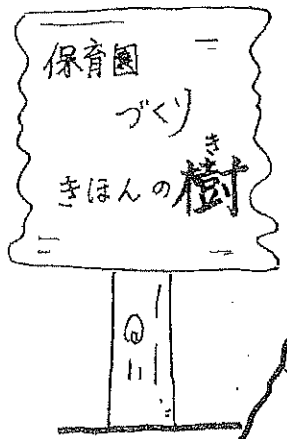 保育園
づくり
きほんの樹
き